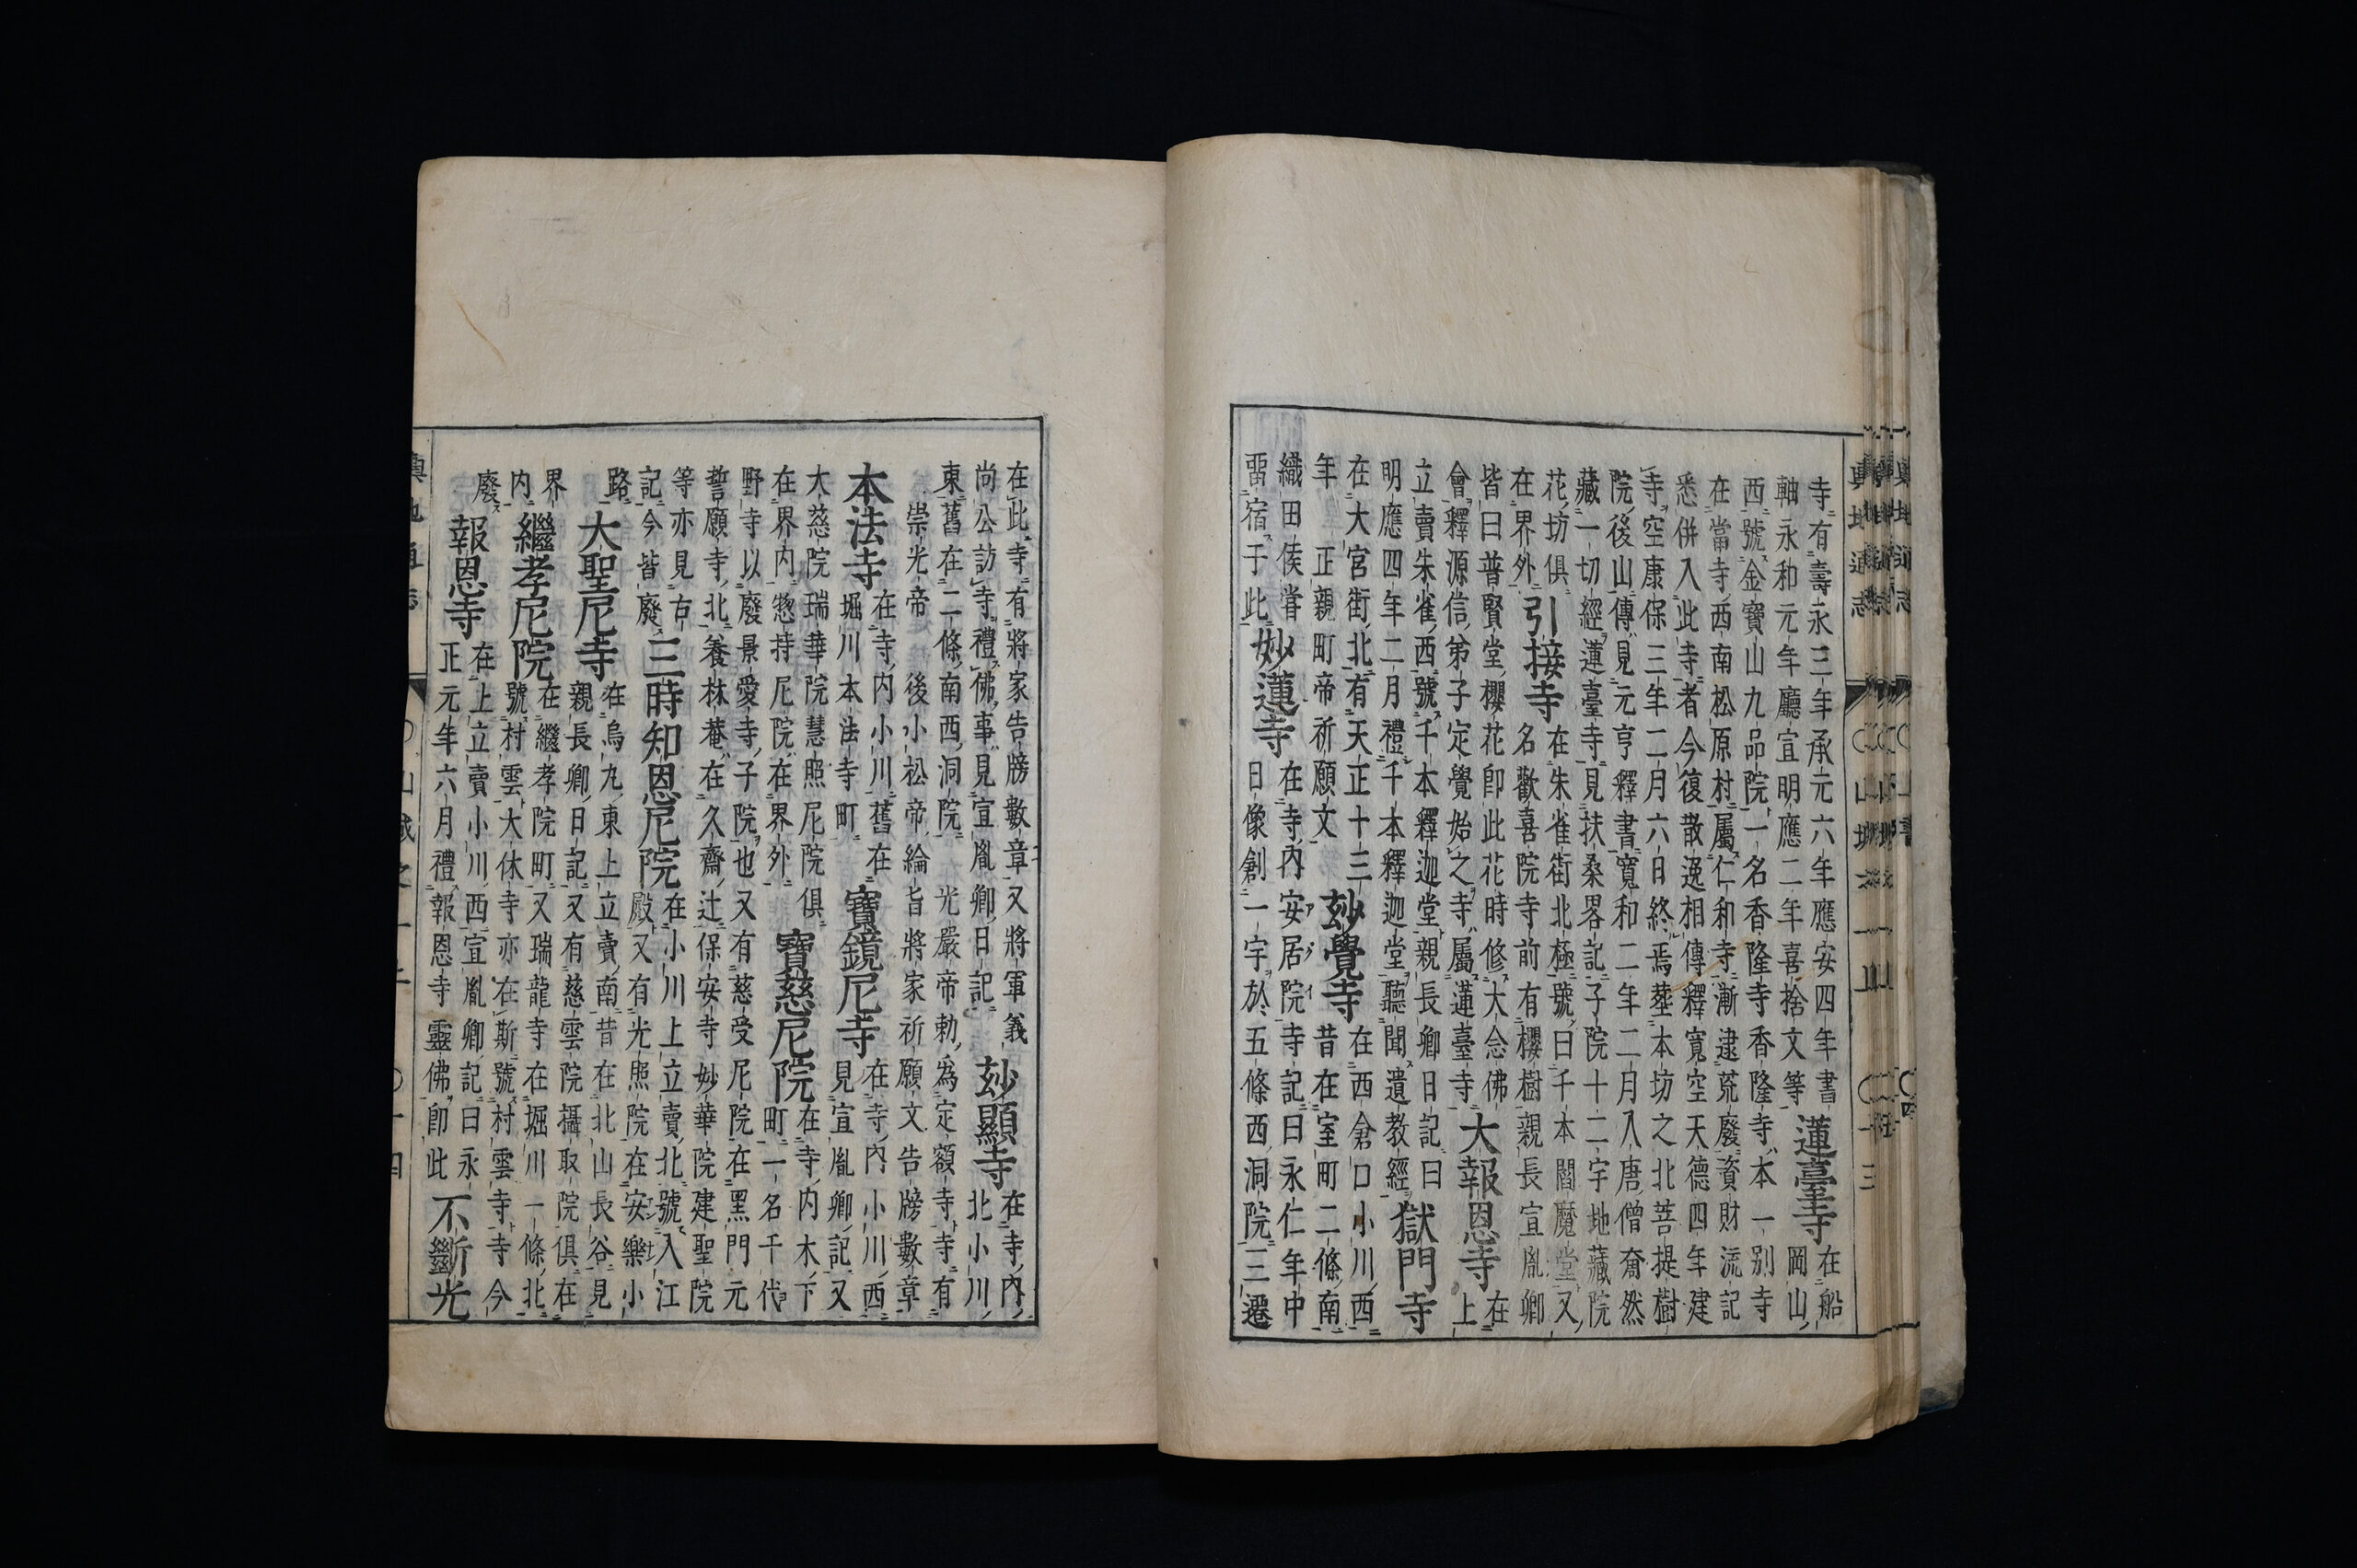 寺有壽永三年承元六年應安四年書
軸永和元年廳宣明應二年喜捨文等
蓮臺寺
在船
岡山
西號金寶山九品院一名香隆寺香隆寺本一別寺
在當寺西南松原村屬仁和寺漸逮荒廢資財流記
悉併入此寺者今復散逸相傳釋寬空天德四年建
寺空康保三年二月六日終焉葬本坊之北菩提樹
院後山傳見元亨釋書寬和二年二月入唐僧奝然
藏一切經蓮臺寺見扶桑畧記子院十二宇地藏院
花坊俱
在界外
引接寺
在朱雀街北極號曰千本閻魔堂又
名歡喜院寺前有櫻樹親長宣胤卿
皆曰普賢堂櫻花卽此花時修大念佛
會釋源信弟子定覺始之寺屬蓮臺寺
大報恩寺
在
上
立賣朱雀西號千本釋迦堂親長卿日記曰
明應四年二月禮千本釋迦堂聽聞遺教經
獄門寺
在大宮街北有天正十三
年 正親町帝祈願文
玅覺寺
在西倉口小川西
昔在室町二條南
織田侯甞
畱宿于此
妙蓮寺
在寺内安居院寺記曰永仁年中
アグイ
日像創一宇於五條西洞院三遷
輿地通志
在此寺有將家告牓數章又將軍義
尚公訪寺禮佛事見宣胤卿日記
玅顯寺
在寺内
北小川
東舊在二條南西洞院 光嚴帝勅爲定額寺寺有
崇光帝 後小松帝綸旨將家祈願文告牓數章
本法寺
在寺内小川舊在
堀川本法寺町
寶鏡尼寺
在寺内小川西
見宣胤卿記又
大慈院瑞華院慧照尼院俱
在界内惣持尼院在界外
寶慈尼院
在寺内木下
町一名千代
野寺以廢景愛寺子院也又有慈受尼院在黑門元
誓願寺北養林菴在久齋辻保安寺妙華院建聖院
等亦見古
記今皆廢
三時知恩尼院
在小川上立賣北號入江
殿又有光照院在安樂小
路
大聖尼寺
在烏丸東上立賣南昔在北山長谷見
親長卿日記又有慈雲院攝取院俱在
界
内
繼孝尼院
在繼孝院町又瑞龍寺在堀川一條北
號村雲大休寺亦在斯號村雲寺寺今
廢
報恩寺
在上立賣小川西宣胤卿記曰永
正元年六月禮報恩寺靈佛卽此
不斷光